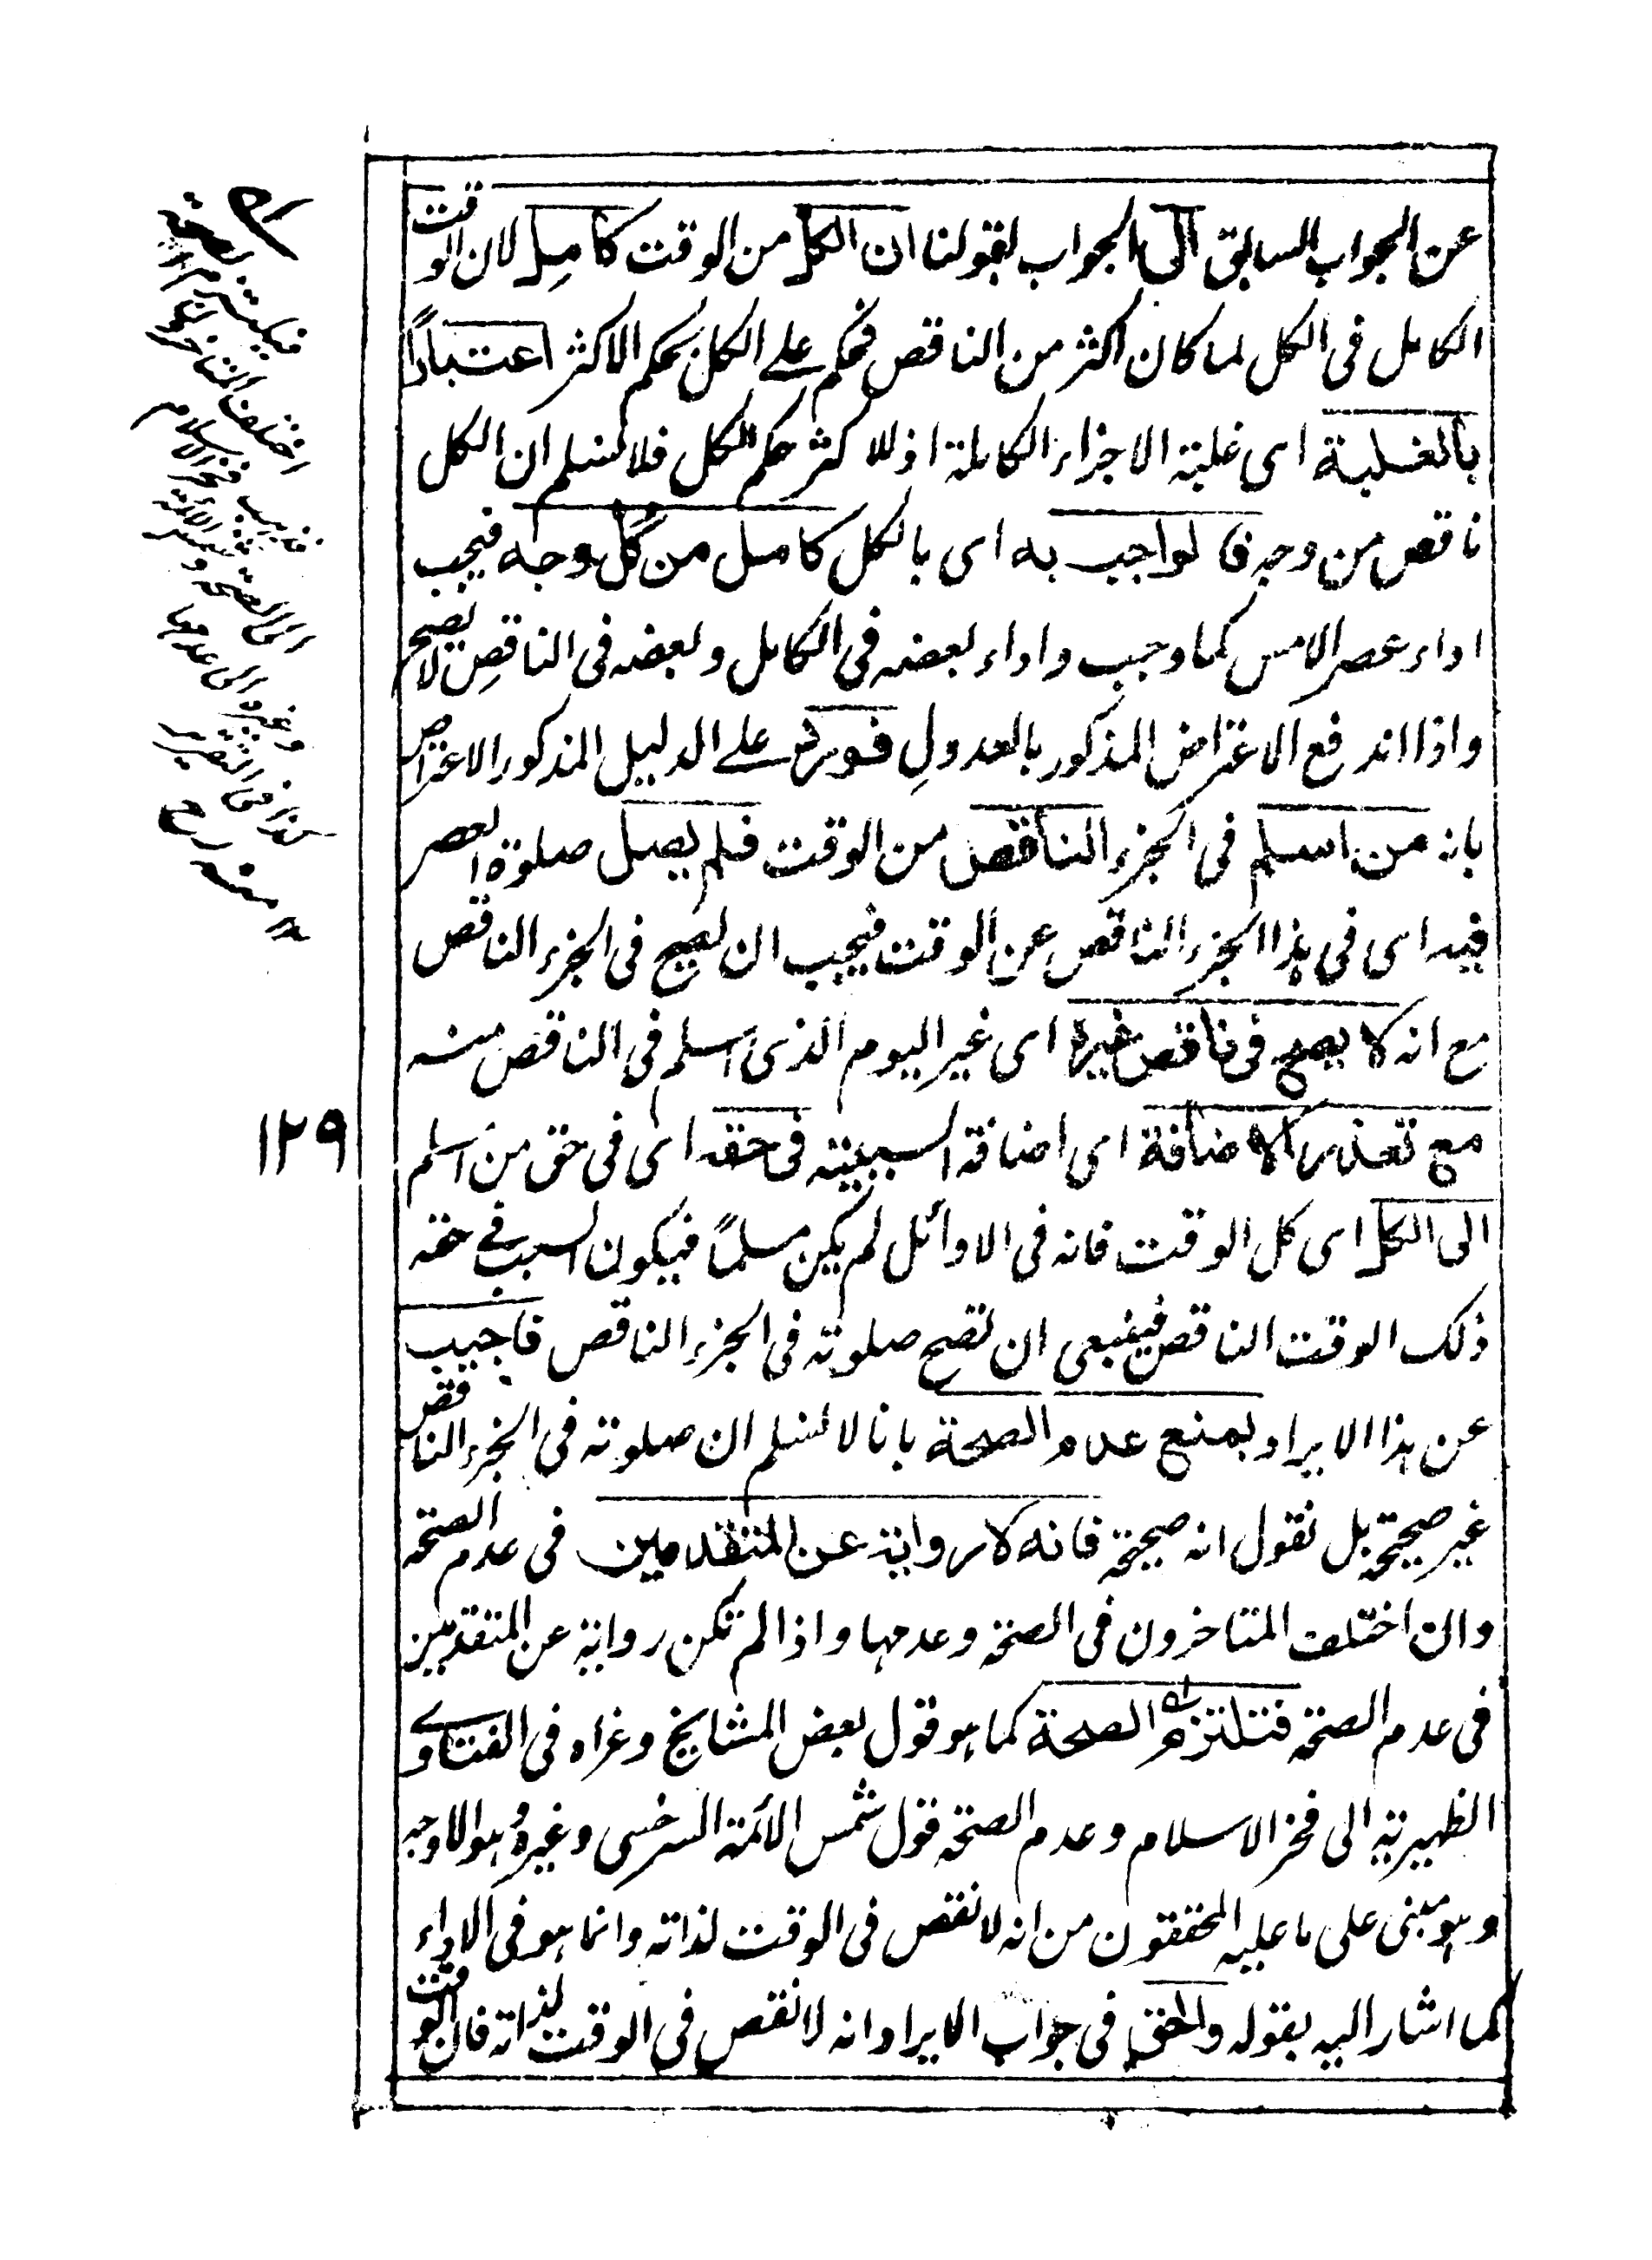 عن الجواب السابق الى الجواب بقولنا ان الكل من الوقت كامل لان الوقت
الكامل فى الكل لما كان اكثر من الناقص فحكم على الكل بحكم الاكثر اعتبارًا
بالغلبة اى غلبة الاجزاء الكاملة اذ للاكثر حكم الكل فلا نسلم ان الكل
ناقص من وجه فالواجب به اى بالكل كامل من كل وجه فيجب
اداء عصر الامس كما وجب واداء بعضه فى الكامل وبعضه فى الناقص لا يصح
واذا اندفع الاعتراض المذكور بالعدول فورد على الدليل المذكور الاعتراض
بانه من اسلم فى الجزء الناقص من الوقت فلم يصل صلوة العصر
فيه اى فى هذا الجزء الناقص عن الوقت فيجب ان يصح فى الجزء الناقص
مع انه لا يصح فى ناقص غيره اى غير اليوم الذى اسلم فى الناقص منه
مع تعذر الاضافة اى اضافة السببية فى حقه اى فى حق من اسلم
الى الكل اى كل الوقت فانه فى الاوائل لم يكن مسلمًا فيكون السبب فى حقه
ذلك الوقت الناقص فينبغى ان تصح صلوته فى الجزء الناقص فاجيب
عن هذا الايراد بمنع عدم الصحة بانا لا نسلم ان صلوته فى الجزء الناقص
غير صحيحة بل نقول انه صحيحة فانه لا رواية عن المتقدمين فى عدم الصحة
وان اختلف المتاخرون فى الصحة وعدمها واذا لم تكن رواية عن المتقدمين
فى عدم الصحة فنلتزم الصحة كما هو قول بعض المشايخ وعزاه فى الفتاوے
الظهيرية الى فخر الاسلام وعدم الصحة قول شمس الأئمة السرخسى وغيره وهو الاوجه
وهو مبنى على ما عليه المحققون من انه لا نقص فى الوقت لذاته وانما هو فى الاداء
كما اشار اليه بقوله والحق فى جواب الايراد انه لا نقص فى الوقت لذاته فان الوقت
فيلتزم الصحة
اختلف المتاخرون
فذهب فخر الاسلام
الى الصحة وشمس الأئمة
وغيره الى عدمها
كذا فى التقرير
١٢ منه
١٢٩